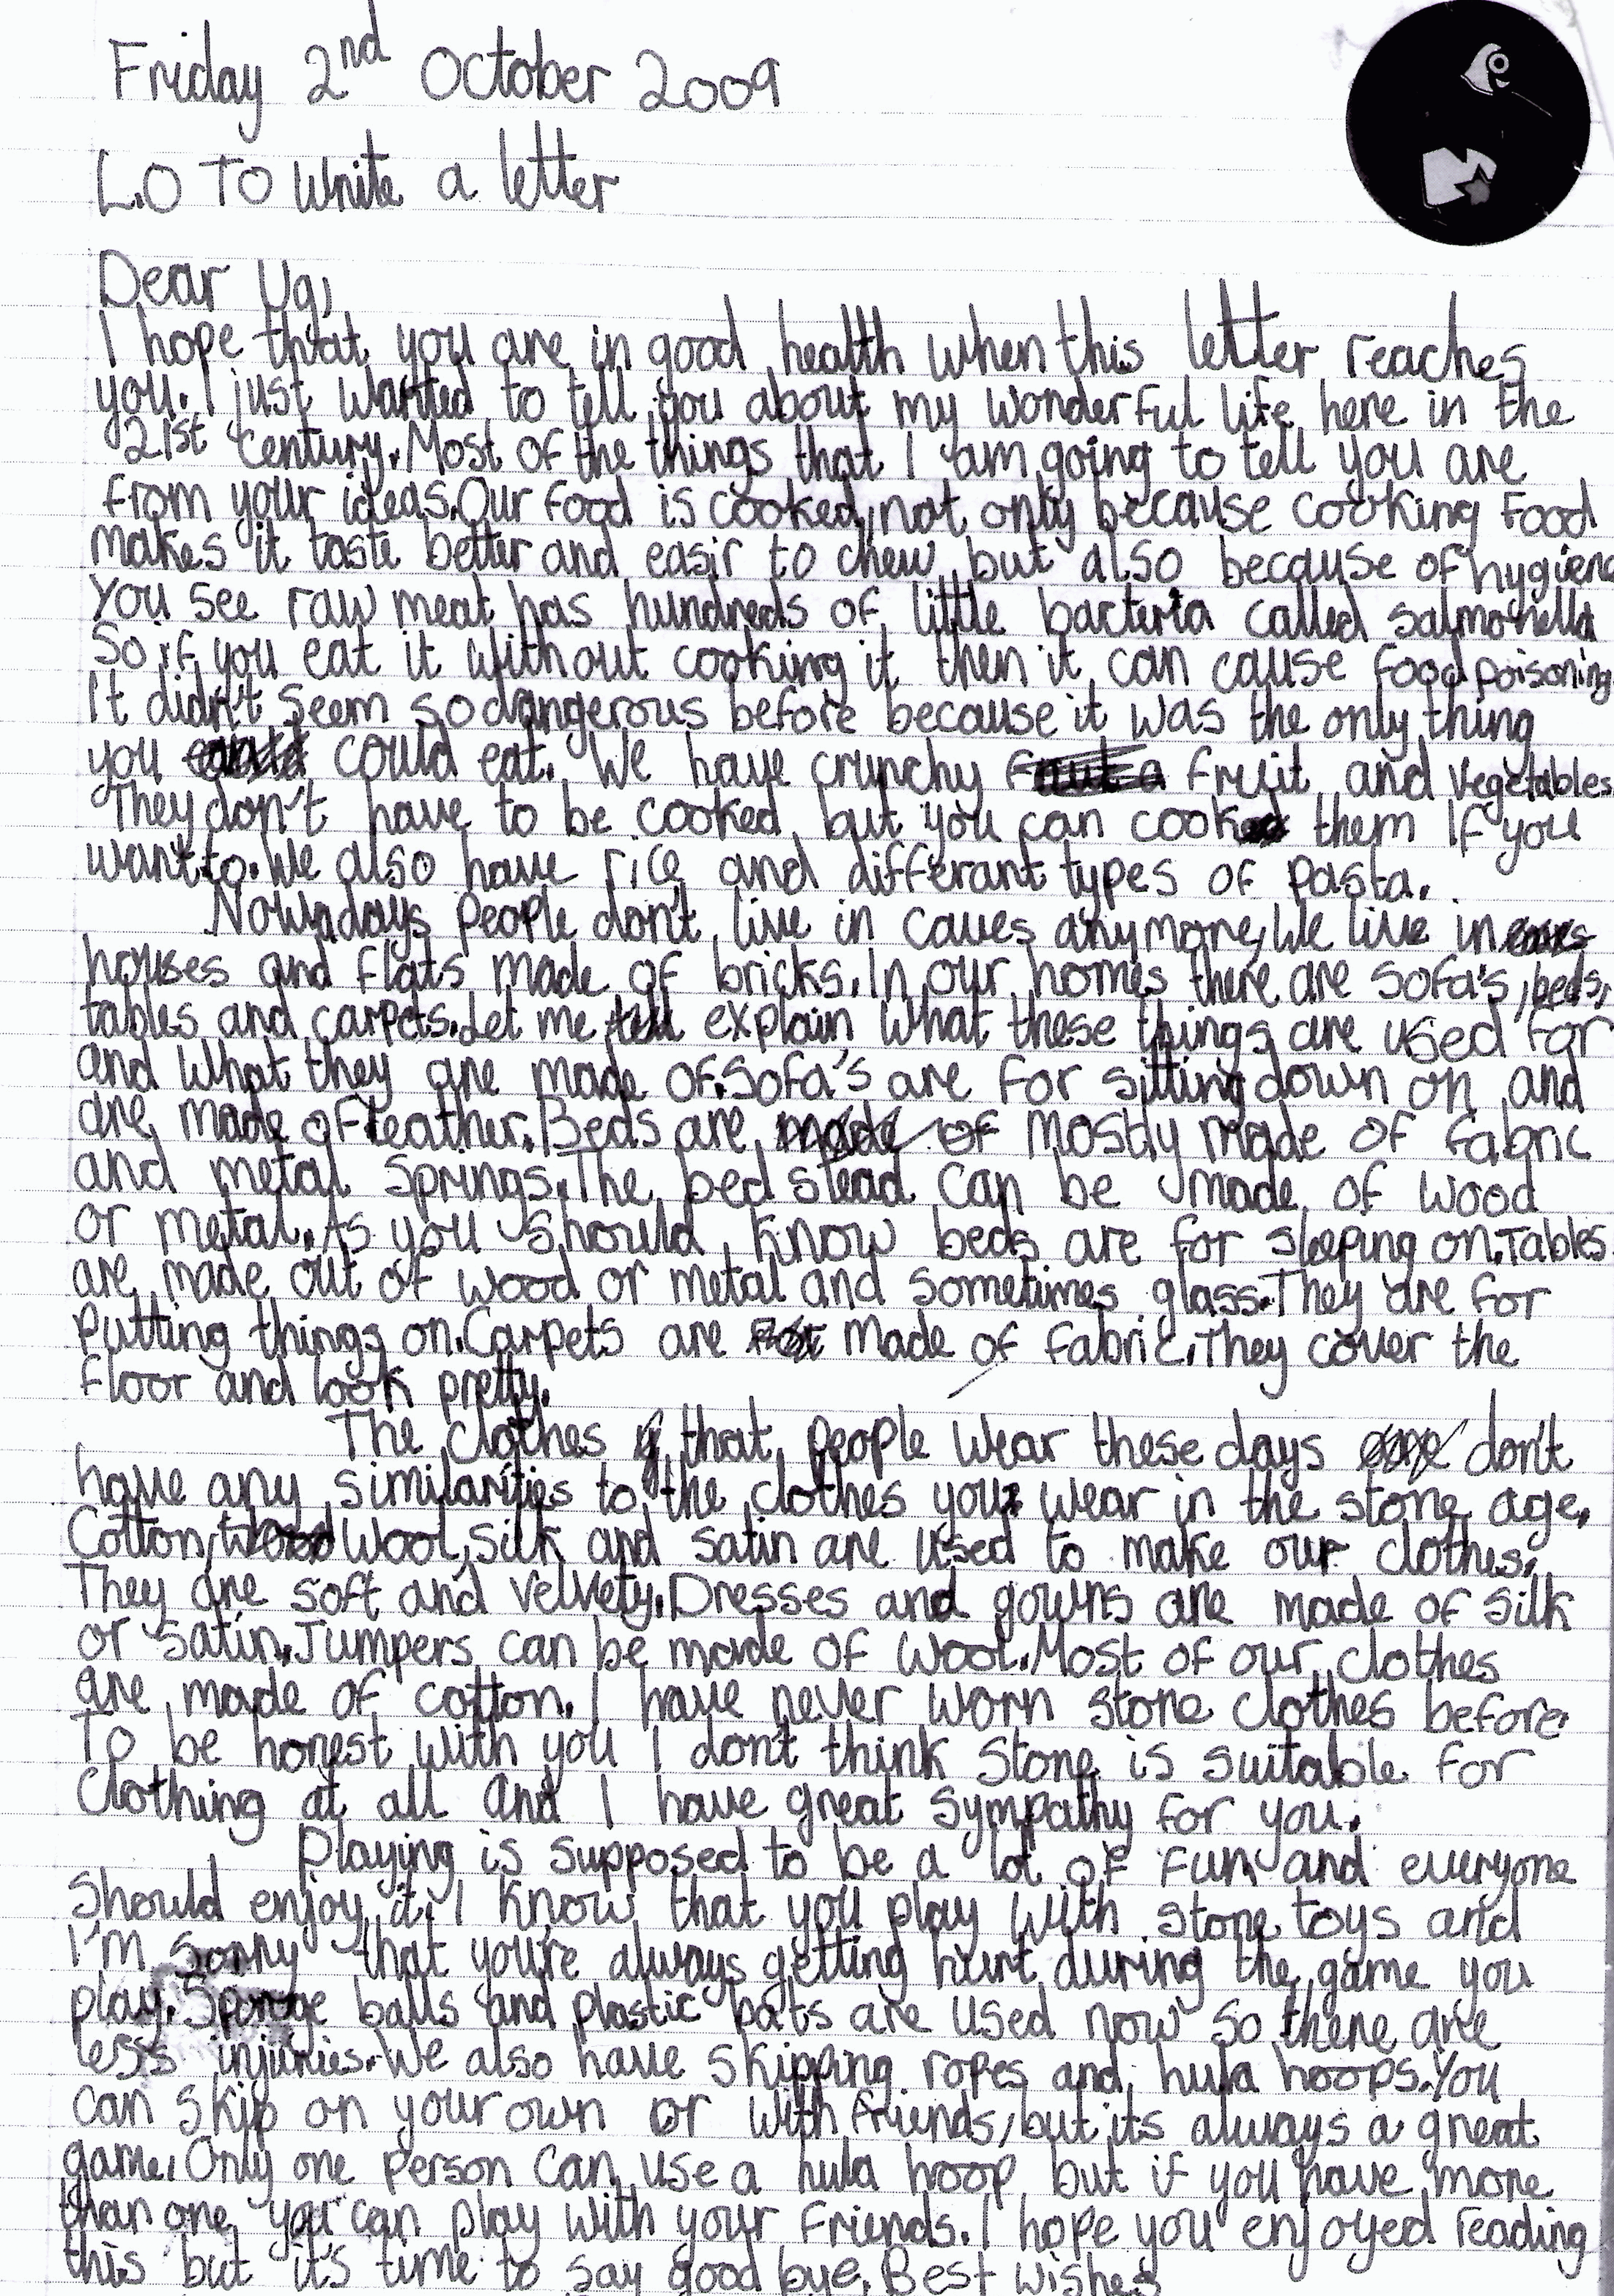 Friday 2nd October 2009
L.O To Write a letter
Dear Ug,
I hope that you are in good health when this letter reaches
you. I just wanted to tell you about my wonderful life here in the
21st century. Most of the things that I am going to tell you are
from your ideas. Our food is cooked, not only because cooking food
makes it taste better and easir to chew but also because of hygiene
You see raw meat has hundreds of little bacteria called salmonella
So if you eat it without cooking it then it can cause food poisoning
It didn't seem so dangerous before because it was the only thing
you could eat. We have crunchy fruit and vegetables.
They don't have to be cooked but you can cook them if you
want to. We also have rice and differant types of pasta.
Nowadays people don't live in caves anymore, We live in
houses and flats made of bricks. In our homes there are sofa's, beds,
tables and carpets. Let me explain what these things are used for
and what they are made of. Sofa's are for sitting down on and
are made of leather. Beds are mostly made of fabric
and metal springs. The bed stead can be made of wood
or metal. As you should know beds are for sleeping on. Tables
are made out of wood or metal and sometimes glass. They are for
putting things on. Carpets are made of fabric. They cover the
floor and look pretty.
The clothes that people wear these days don't
have any similarities to the clothes you wear in the stone age.
Cotton, wool, silk and satin are used to make our clothes.
They are soft and velvety. Dresses and gowns are made of silk
or satin. Jumpers can be made of wool. Most of our clothes
are made of cotton. I have never worn stone clothes before.
To be honest with you I don't think stone is suitable for
clothing at all and I have great sympathy for you.
Playing is supposed to be a lot of fun and everyone
should enjoy it. I know that you play with stone toys and
I'm sorry that you're always getting hurt during the game you
play. Sponge balls and plastic bats are used now so there are
less injuries. We also have skipping ropes and hula hoops. You
can skip on your own or with friends, but its always a great
game. Only one person can use a hula hoop but if you have more
than one you can play with your friends. I hope you enjoyed reading
this but it's time to say good bye. Best wishes